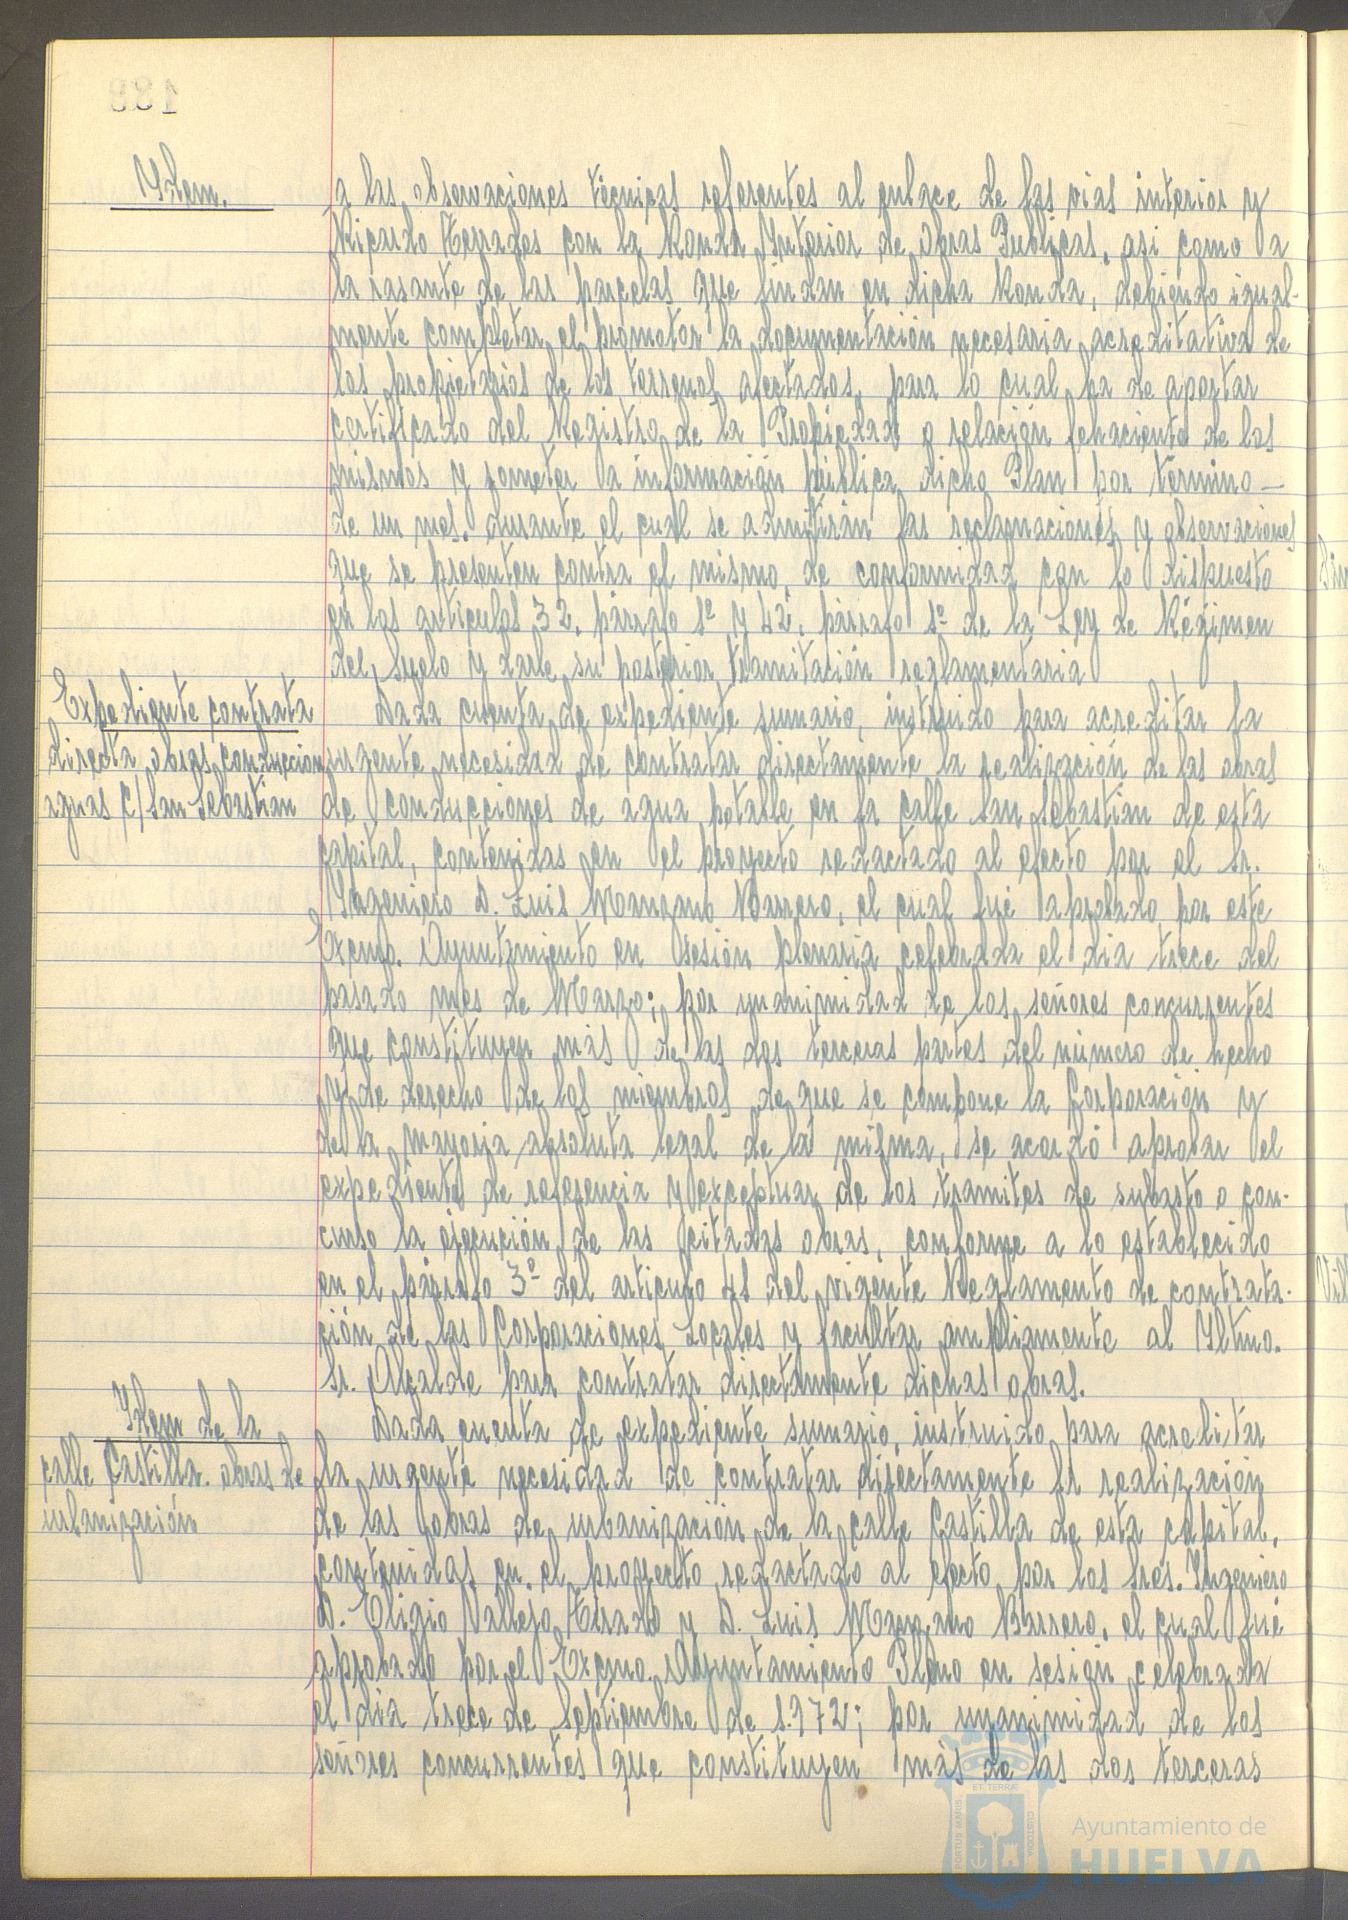 Idem.
a las observaciones técnicas referentes al enlace de las vias interior y
Ricardo Terrades con la Ronda Interior de Obras Publicas, asi como a
la rasante de las parcelas que lindan en dicha Ronda, debiendo igual-
mente completar el promotor la documentación necesaria acreditativa de
los propietarios de los terrenos afectados, para lo cual ha de aportar
certificado del Registro de la Propiedad o relación fehaciente de los
mismos y someter a información pública dicho Plan por término -
de un mes, durante el cual se admitirán las reclamaciones y observaciones
que se presenten contra el mismo, de conformidad con lo dispuesto
en los artículos 32, párrafo 1º y 42, párrafo 1º de la Ley de Régimen
del Suelo y darle su posterior tramitación reglamentaria
Expediente contrata
directa obras conduccion
aguas C/ San Sebastian
Dada cuenta de expediente sumario, instruido para acreditar la
urgente necesidad de contratar directamente la realización de las obras
de conducciones de agua potable en la calle San Sebastian de esta
capital, contenidas en el proyecto redactado al efecto por el Sr.
Ingeniero D. Luis Manzano Barrero, el cual fué aprobado por este
Excmo. Ayuntamiento en sesión plenaria celebrada el dia trece del
pasado mes de Marzo; por unanimidad de los señores concurrentes
que constituyen más de las dos terceras partes del número de hecho
y de derecho de los miembros de que se compone la Corporación y
de la mayoria absoluta legal de la misma, se acordó aprobar el
expediente de referencia y exceptuar de los tramites de subasta o con-
curso la ejecución de las citadas obras, conforme a lo establecido
en el párrafo 3º del articulo 41 del vigente Reglamento de contrata-
ción de las Corporaciones Locales y facultar ampliamente al Iltmo.
Sr. Alcalde para contratar directamente dichas obras.
Idem de la
calle Castilla. obras de
urbanización
Dada cuenta de expediente sumario, instruido para acreditar
la urgente necesidad de contratar directamente la realización
de las obras de urbanización de la calle Castilla de esta capital,
contenidas en el proyecto redactado al efecto por los Sres. Ingeniero
D. Eligio Vallejo Tirado y D. Luis Manzano Barrero, el cual fué
aprobado por el Excmo. Ayuntamiento Pleno en sesión celebrada
el dia trece de Septiembre de 1.972; por unanimidad de los
señores concurrentes que constituyen más de las dos terceras
PORTUS MARIS ET TERRAE CUSTODIA
Ayuntamiento de
HUELVA